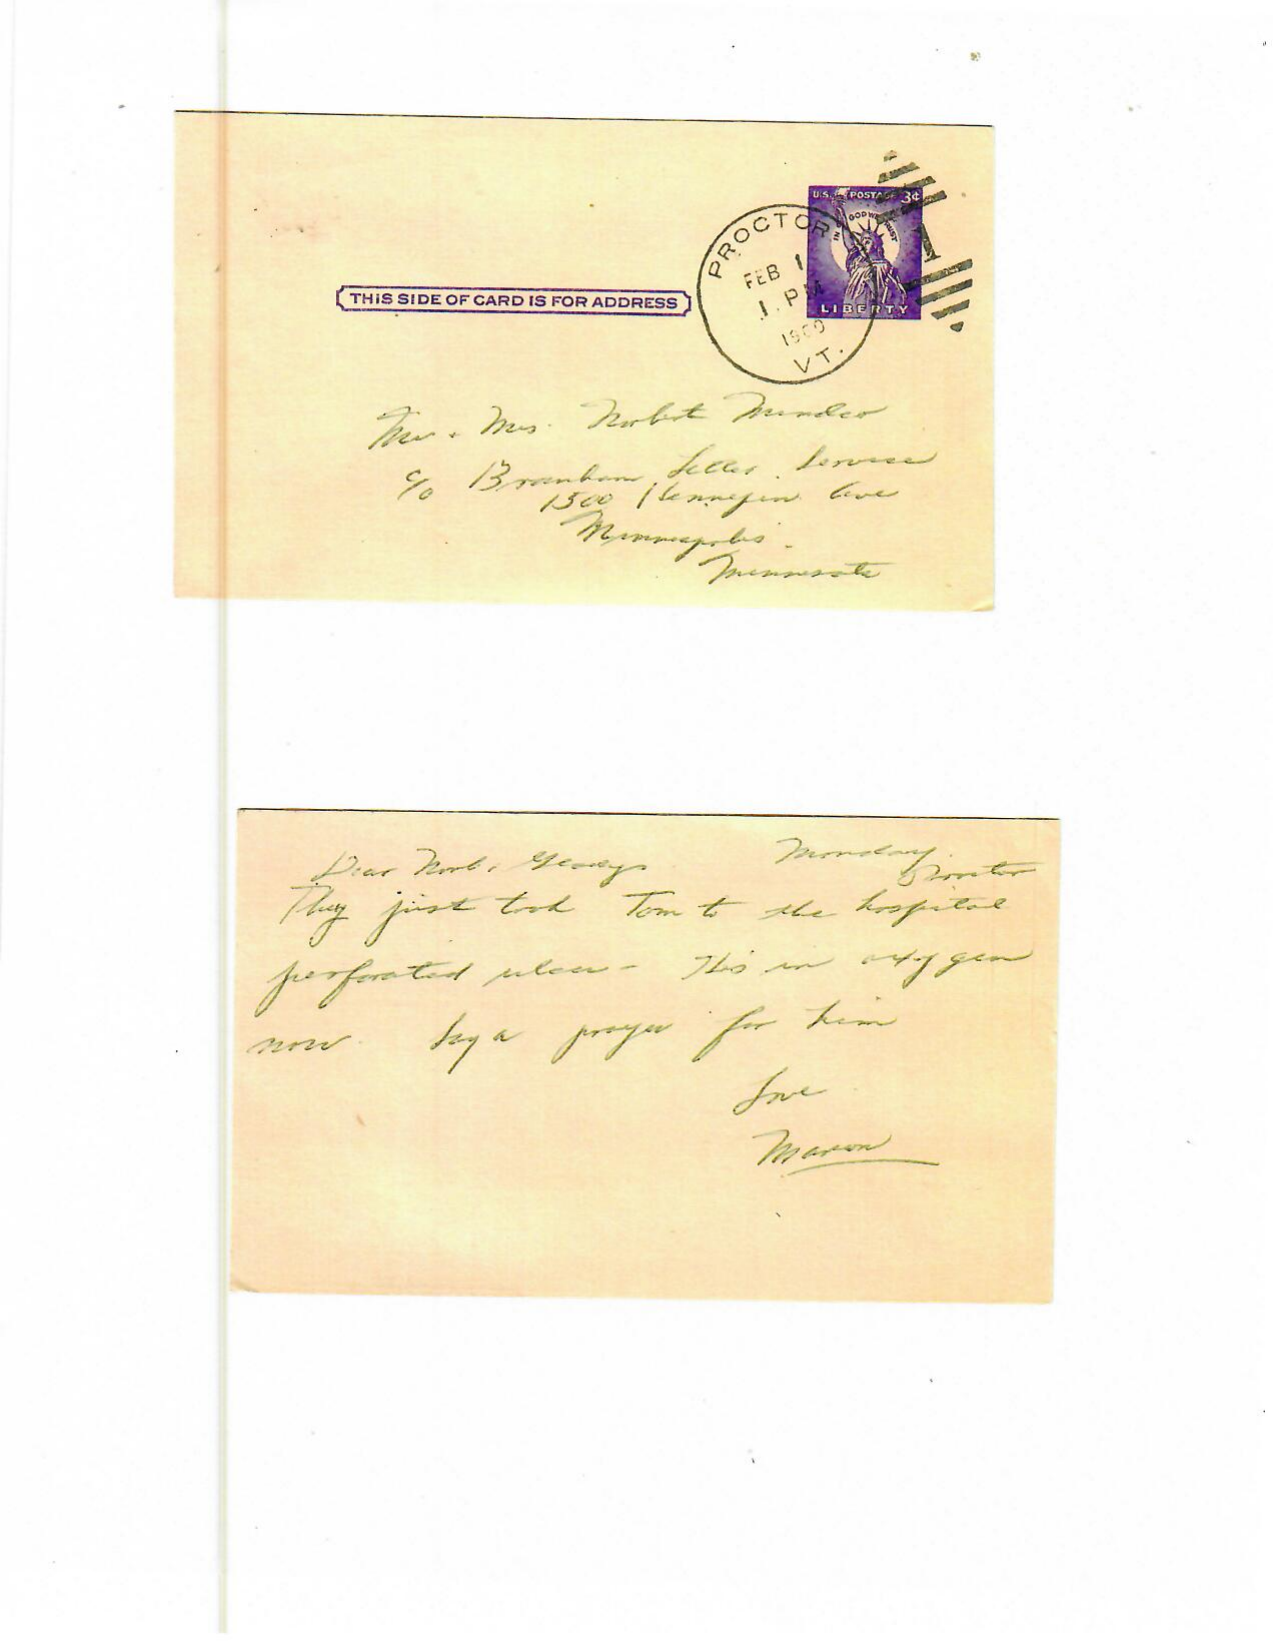 U.S. POSTAGE 3¢
IN GOD WE TRUST
LIBERTY
PROCTOR
FEB 1
1 PM
1960
VT.
1
THIS SIDE OF CARD IS FOR ADDRESS
Mr + Mrs. Norbert
c/o Branham Letter Service
1500 Hennepin Ave
Minneapolis
Minnesota
Monday
Proctor
Dear Norb + Gladys
They just took Tom to the hospital
perforated ulcer - He's in oxygen
now. Say a prayer for him
Love